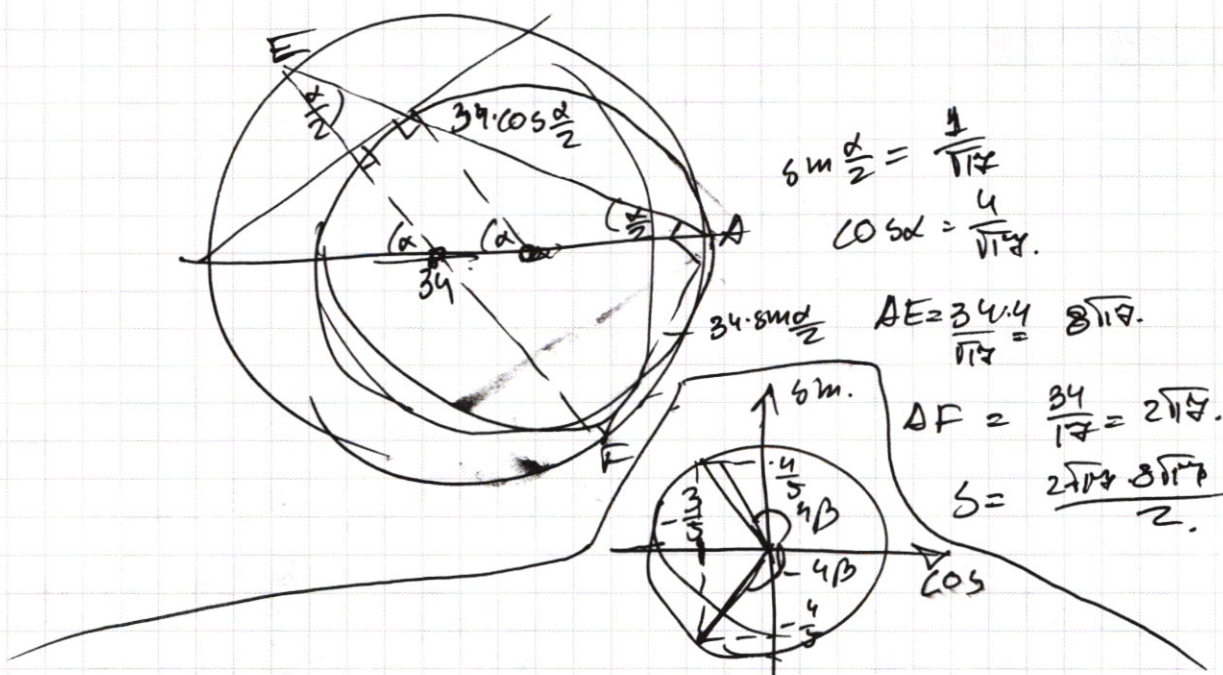 E
α/2
34·cos α/2
(α
(α
(α/2
A
34
34·sin α/2
F
sin α/2 = 1/√17
cosα = 4/√17.
AE = 34·4/√17 = 8√17.
AF = 34/17 = 2√17.
S = 2√17·8√17/2.
sin.
4/5
-3/5
4β
-4β
-4/5
cos